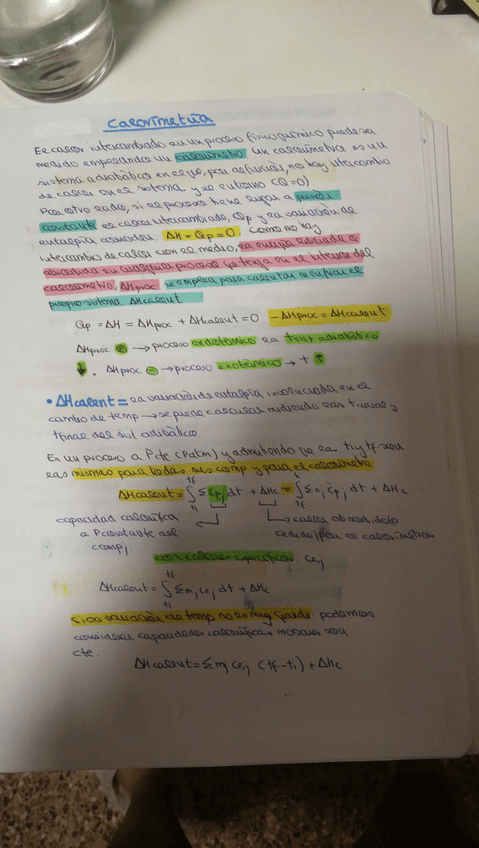 Calorimetría
El calor intercambiado en un proceso fisicoquímico puede ser
medido empleando un calorímetro. Un calorímetro es un
sistema adiabático en el que, por definición, no hay intercambio
de calor en el sistema y el entorno (Q=0)
Por otro lado, si el proceso tiene lugar a presión
constante el calor intercambiado, Qp y la variación de
entalpía coinciden. ΔH = Qp = 0. Como no hay
intercambio de calor con el medio, la energía liberada o
absorbida en cualquier proceso que tenga en el interior del
calorímetro, ΔHproc se emplea para calentar o enfriar el
propio sistema, ΔHcalent
Qp = ΔH = ΔHproc + ΔHcalent = 0 -ΔHproc = ΔHcalent
ΔHproc ⊕ → proceso endotérmico la t sist adiabático
↓. ΔHproc ⊖ → proceso exotérmico → t ↑
• ΔHcalent = la variación de entalpía involucrada en el
cambio de temp → se puede calcular midiendo las t inicial y
t final del sist adiabático.
En un proceso a P cte (Patm) y admitiendo que la ti y tf son
las mismas para todos sus comp y para el calorímetro.
ΔHcalent = ∫ti tf Σ cpj dt + ΔHc = ∫ti tf Σ nj c̄pj dt + ΔHc
capacidad calorífica
a P constante del
compj
calor absorbido o
cedido por el calorímetro
calores específicos: cej
ΔHcalent = ∫ti tf Σ mj cej dt + ΔHc
Si la variación de temp no es muy grande: podemos
considerar capacidades caloríficas molares son
cte.
ΔHcalent = Σ mj cej (tf - ti) + ΔHc